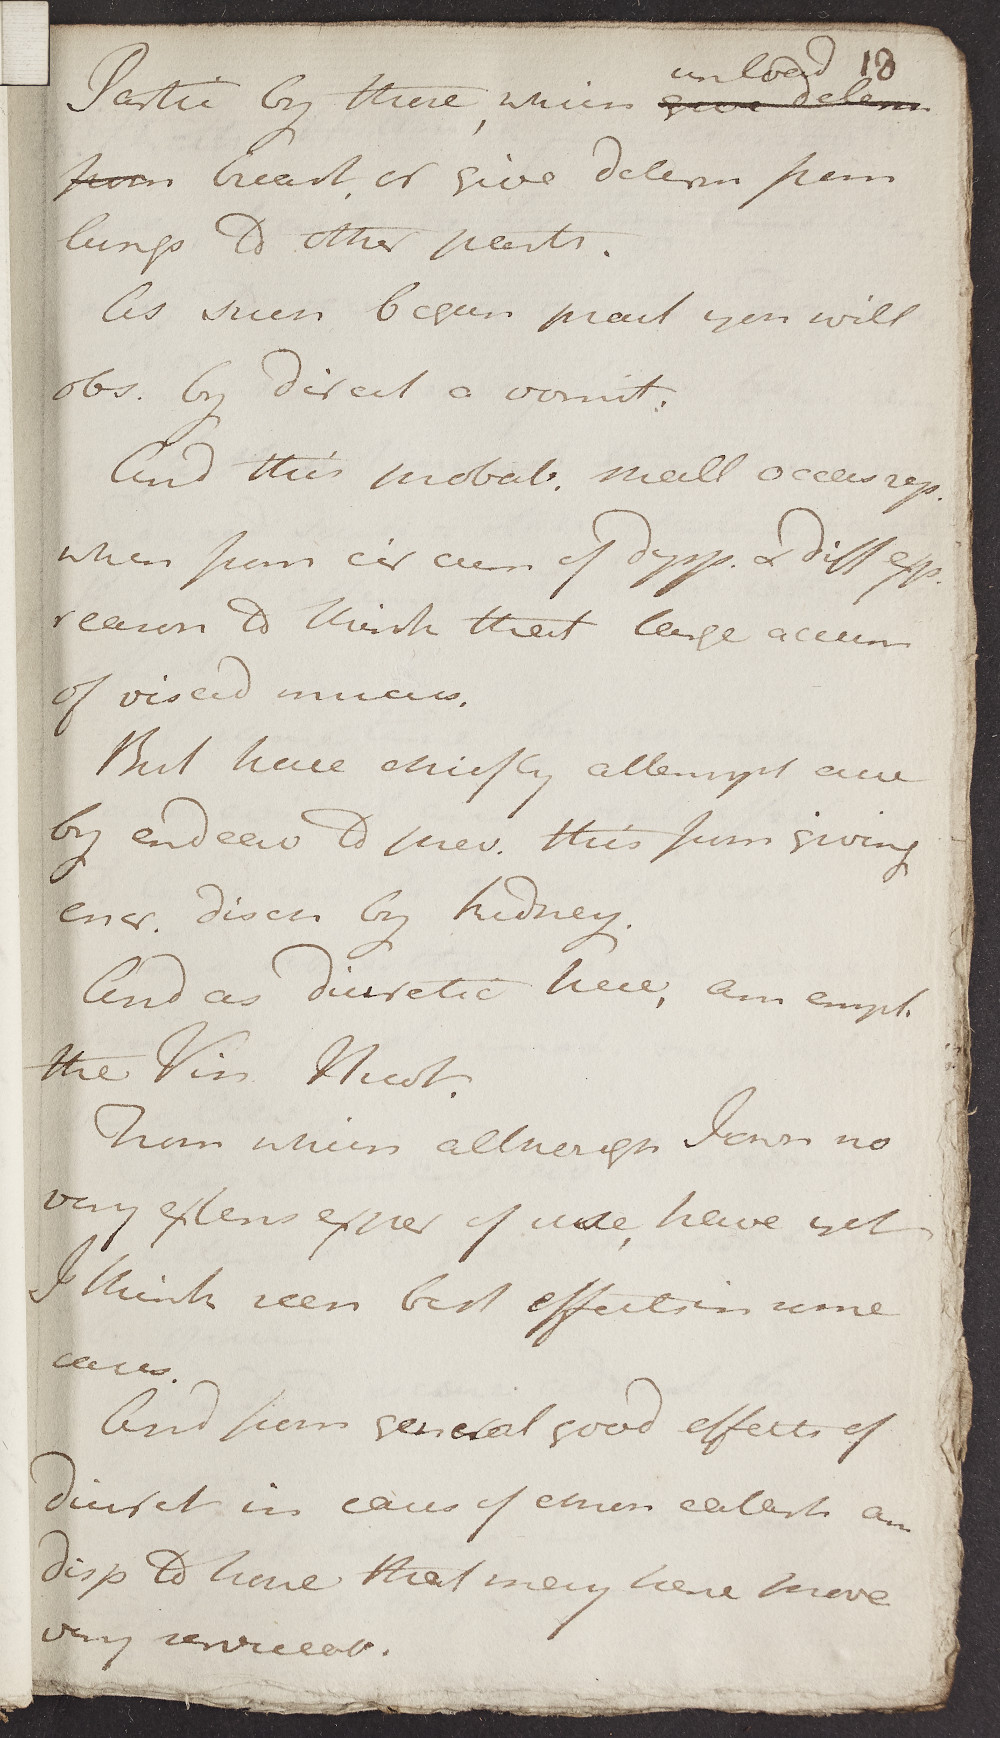 18
unload
Partic by those, which give determ
from breast, or give determ from
lungs to other parts.
As soon began pract you will
obs. by direct a vomit.
And this probab. shall occas rep.
when from circum of dysp. & diff exp.
reason to think that large accum
of viscid mucus.
But have chiefly attempt cure
by endeav to prev. this from giving
incr. disch by kidney.
And as diuretic here, am empl.
the Vin Nicot.
From which although I own no
very extens exper of use, have yet
I think seen best effects in some
cases.
And from general good effects of
diuret in cases of chron catarrh am
disp to hope that may here prove
very serviceab.